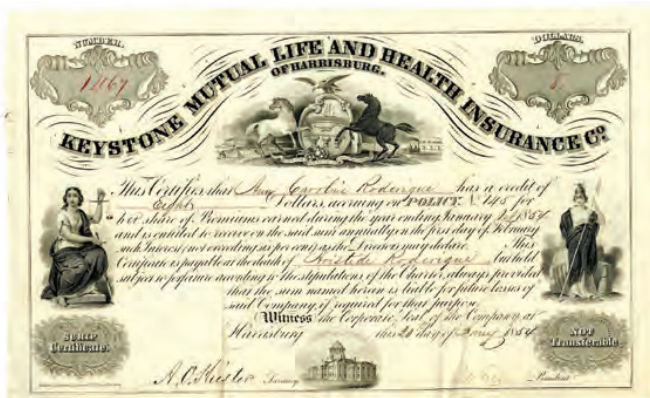 NUMBER.
DOLLARS.
1467
8
KEYSTONE MUTUAL LIFE AND HEALTH INSURANCE Co.
OF HARRISBURG.
This Certifies that Ann Caroline Roderigue has a credit of
Eight Dollars, accruing on POLICY No. 145 for
her share of Premiums earned during the year ending January 1854
and is entitled to receive on the said sum annually on the first day of February
such Interest (not exceeding six per cent) as the Directors may declare. This
Certificate is payable at the death of Aristide Roderigue but held
subject to forfeiture according to the stipulations of the Charter, always provided
that the sum named herein is liable for future losses of
said Company, if required for that purpose.
Witness the Corporate Seal of the Company, at
Harrisburg this 20 day of Jany 1854
SCRIP
Certificate.
NOT
Transferable
Treasury
President